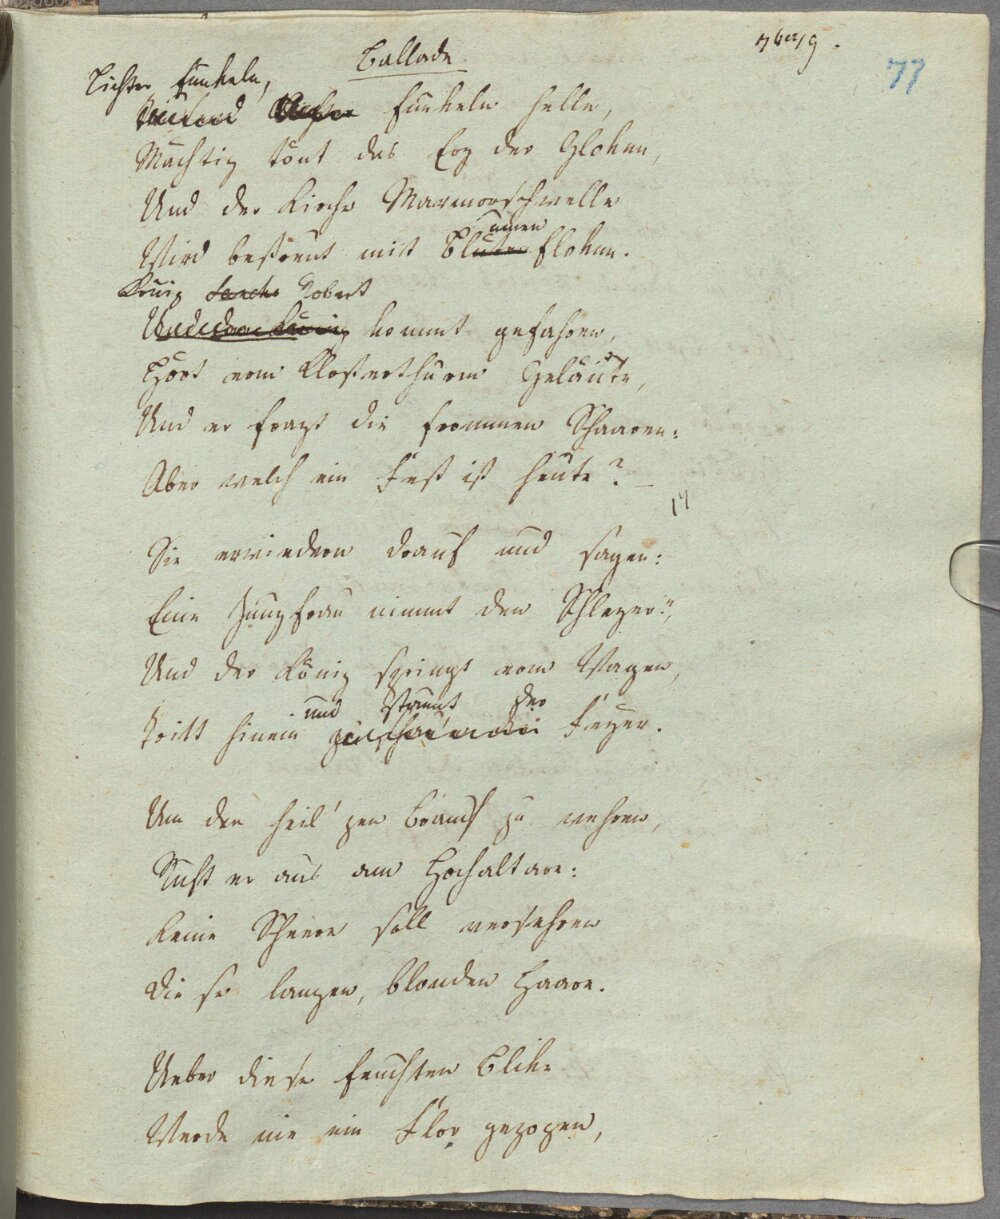 Ballade.
77
Lichter funkeln,
funkeln helle,
Mächtig tönt das Erz der Gloken,
Und der Kirche Marmorschwelle
umen
Wird bestreut mit Bluten floken.
König Robert
kommt gefahren,
Hört vom Klosterthurm Geläute,
Und er fragt die frommen Schaaren:
Aber welch ein Fest ist heute? –
Sie erwiedern drauf und sagen:
Eine Jungfrau nimmt den Schleyer."
Und der König springt vom Wagen,
und staunt der
Tritt hinein Feyer.
Um den heil'gen Brauch zu wehren,
Ruft er aus am Hochaltare:
Keine Scheere soll versehren
Diese langen, blonden Haare.
Ueber diese feuchten Blike
Werde nie ein Flor gezogen,